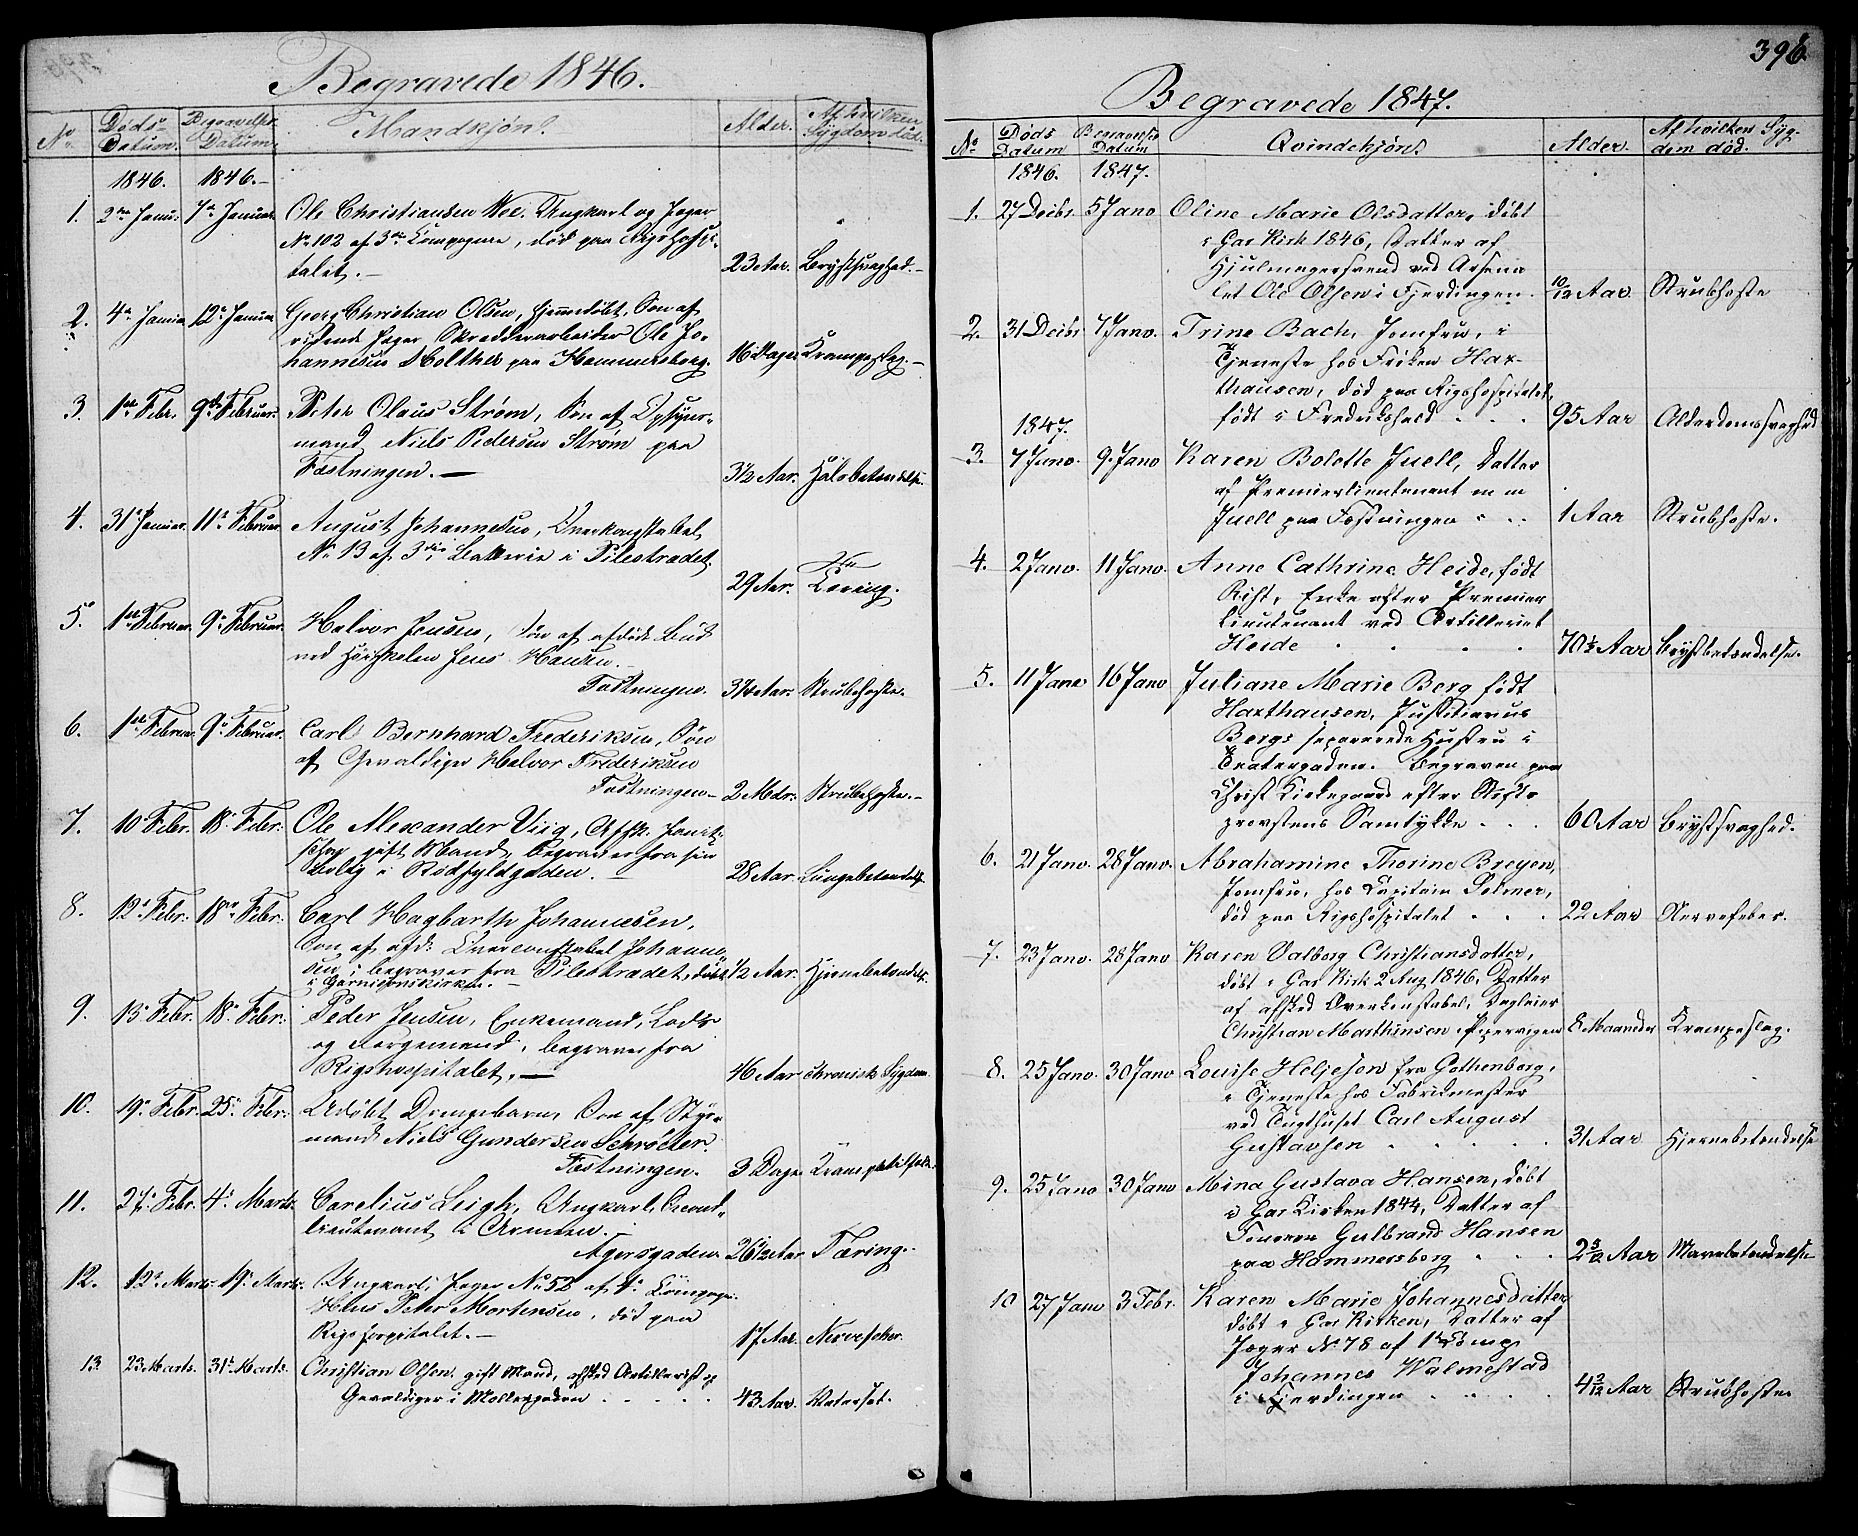 Begravede 1846.
No Døds-Datum. Begravelses Datum. Mandkjøn. Alder. Af hvilken Sygdom død.
1846. 1846.
1. 2den Janu: 7de Januar Ole Christiansen Ungkarl og Jæger
No 102 af 3die Kompagnie, død paa Rigshospi-
talet. 23 Aar. Brystsvaghed.
2. 4de Januar 12te Januar Georg Christian Olsen, hjemmedøbt, Søn af
ridende Jæger Skrædderarbeider Ole Jo-
hannesen Molther paa Hammersborg. 16 Dage Krampeslag.
3. 1ste Febr. 9de Februar: Peter Olaus Strøm, Søn af Opsyns-
mand Niels Pedersen Strøm paa
Fæstningen. 3 1/2 Aar. Halsbetændelse.
4. 31te Januar. 11te Februar. August Johannesen, Overkonstabel
No 13 af 3die Batterie i Pilestrædet.
29 Aar. Tæring.
5. 1ste Februar. 9de Februar. Halvor Jensen, Søn af afdøde Bud
ved Høiskolen Jens Hansen.
Fæstningen. 3 1/4 Aar. Strubehoste.
6. 1ste Februar 9de Februar. Carl Bernhard Frederiksen, Søn
af Gevaldiger Halvor Frederiksen
Fæstningen 2 Mdr: Strubehoste.
7. 10 Febr. 18 Febr: Ole Alexander Viig, Afsk.
gift Mand, begraves fra sin
Bolig i Rødfyldgaden. 28 Aar Lungebetændelse
8. 12te Febr. 18de Febr. Carl Hagbarth Johannesen,
Søn af afd: Overconstabel Johanne-
sen, begraves fra Pilestrædet, døbt
i Garnisonskirken. 1/2 Aar. Hjernebetændelse.
9. 13de Febr. 18de Febr: Peder Jensen, Enkemand, Lods
og Borgermand, begraves fra
Rigshospitalet. 46 Aar chronisk Sygdom.
10. 19de Febr. 25de Febr: Udøbt Drengebarn, Søn af Styr-
mand Niels Gundersen Schrøder.
Fæstningen. 3 Dage
11. 27de Febr. 4de Marts. Carelius Leigh, Ungkarl, Second-
lieutenant i Armeen.
Agersgaden 26 1/2 Aar Tæring.
12. 12te Marts 19de Marts. Ungkarl, Jæger No 52 af 4de Compagni
Hans Peter Mortensen, død paa
Rigshospitalet. 17 Aar. Nervefeber.
13. 23 Marts. 31te Marts. Christian Olsen gift Mand, afsked Artillerist og
Gevaldiger i Møllergaden 43 Aar. Vatersot.
396
Begravede 1847.
No Døds Datum Begravelses Datum Qvindekjøn. Alder. Af hvilken Syg-
dom død.
1846. 1847.
1. 27 Decbr. 5 Jano Oline Marie Olsdatter, døbt
i Gar Kirk 1846, Datter af
Hjulmagersvend ved Arsena
let Ole Olsen i Fjerdingen. 10/12 Aar Strubhoste
2. 31 Decbr 7 Jano. Trine Bach, Jomfru, i
Tjeneste hos Frøken Hax-
thausen, død paa Rigshospitalet,
født i Frederikshald 95 Aar Alderdomssvaghed
1847.
3. 7 Jano. 9. Jano Karen Bolette Juell, Datter
af Premierlieutenant m m
Juell paa Fæstningen 1 Aar Strubhoste.
4. 2 Jano. 11 Jano. Anne Cathrine Heide, født
Rist, Enke efter Premier
Lieutenant ved Artilleriet
Heide 70 1/2 Aar Brystbetændelse.
5. 11 Jano 16 Jano Juliane Marie Berg født
Haxthausen, Justitiarius
Bergs separerede Hustru i
Theatergaden. Begraven paa
Christ Kirkegaard efter Stifts
provstens Samtykke 60 Aar Brystsvaghed.
6. 21 Jano. 28 Jano. Abrahamine Therine Breyen,
Jomfru, hos Capitain Selmer,
død paa Rigshospitalet 22 Aar Nervefeber.
7. 23 Jano. 28 Jano Karen Valborg Christiansdatter,
døbt i Gar Kirk 2 Aug 1846. Datter
af afsked Overkonstabel, Dagleier
Christian Marthinsen, Pipervigen 8 Maaneder Krampeslag.
8. 25 Jano. 30 Jano Louise Heljesen fra Gothenborg,
i Tjeneste hos Fabrikmester
ved Tugthuset Carl August
Gustavsen 31 Aar Hjernebetændelse
9. 25 Jano 30 Jano Mina Gustava Hansen, døbt
i Gar Kirken 1844, Datter af
Foureer Gulbrand Hansen
paa Hammersborg 2 5/12 Aar Mavebetændelse
10 27 Jano 3 Febr. Karen Marie Johannesdatter
døbt i Gar Kirken, Datter af
Jæger No 78 af 1ste Comp
Johannes Walmestad
i Fjerdingen 4 2/12 Aar Strubhoste